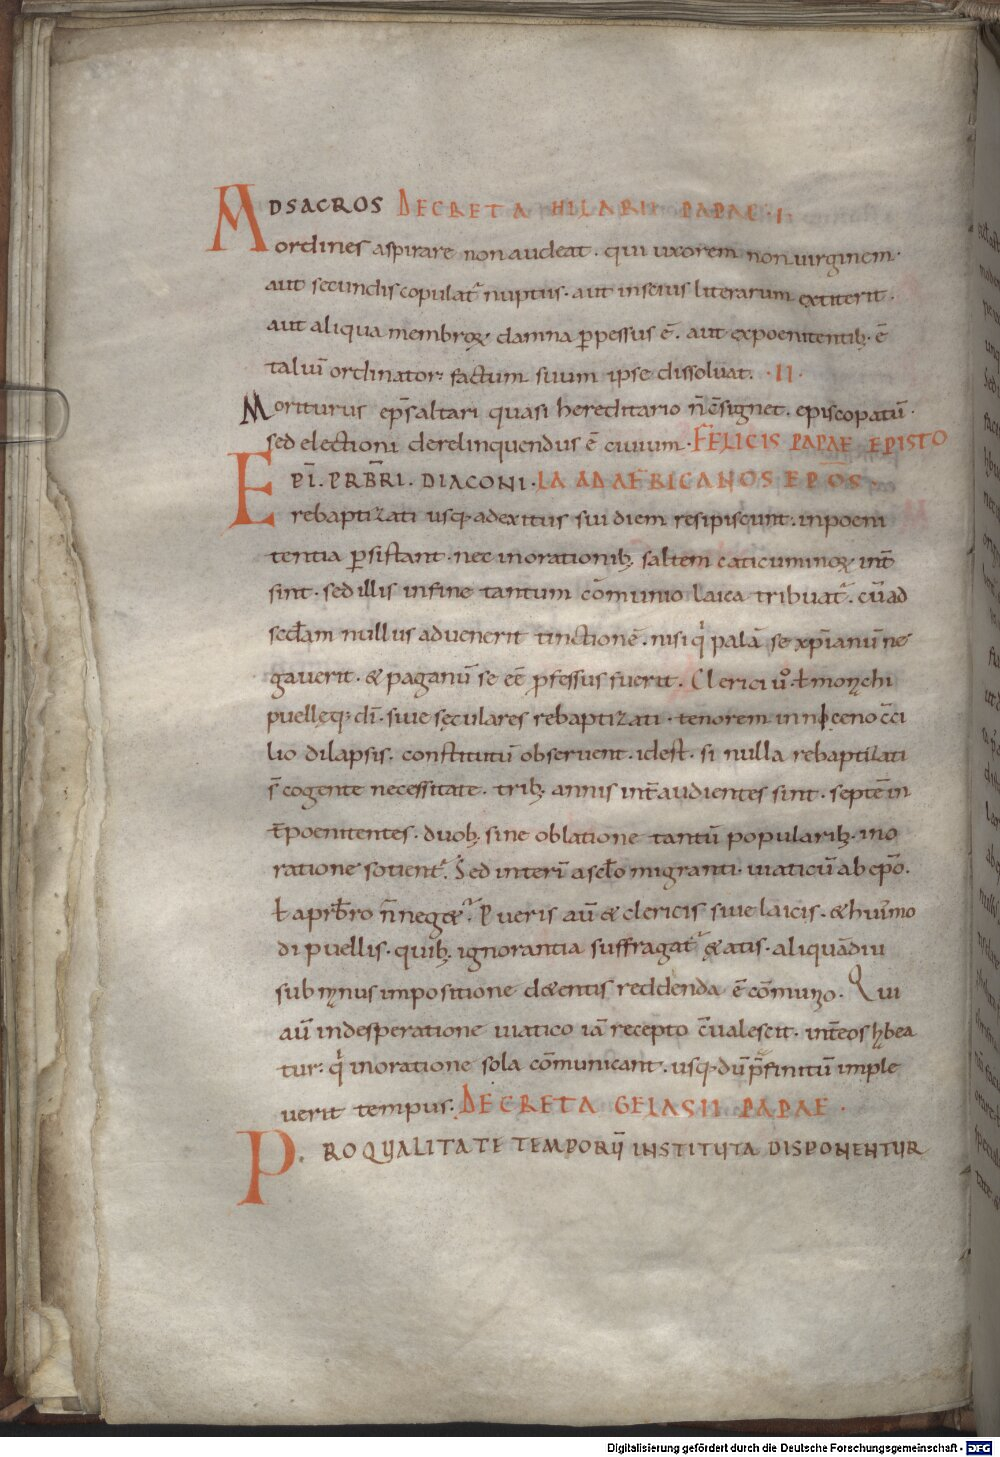 ADSACROS DECRETA HILARII PAPAE · I ·
ordines aspirare non audeat · qui uxorem non uirginem ·
aut secundis copulat̄ nuptus · aut inscius literarum extiterit ·
aut aliqua membroꝝ damna ꝑpessus ē · aut expoenitentibꝫ · ē
talium̄ ordinator · factum suum ipse dissoluat · · II ·
Moriturus ep̄s altari quasi hereditario n̄ c̄signet · episcopatū ·
sed electioni derelinquendus ē ciuium · FELICIS PAPAE EPISTO
EPĪ · PRB̄RI · DIACONI · LA AD AFRICANOS EPŌS ·
rebaptizati usqꝫ adexitus sui diem resipiscunt · inpoeni
tentia ꝑsistant · nec inorationibꝫ saltem caticuminoꝝ int̄
sint · sed illis infine tantum cōmunio laica tribuat̄ · cū ad
secd̄am nullus aduenerit tinctionē · nisi qi palā se xp̄ianū ne
gauerit · & paganū se eē ꝓfessus fuerit · Clerici uo · ł monchi
puellęqꝫ dī · siue sęculares rebaptizati · tenorem innceno c̄ci
lio dilapsis · constitutū obseruent · idest · si nulla rebaptizati
s̄ cogente necessitate · tribꝫ annis int̄ audientes sint · septē in
t̄ poenitentes · duobꝫ sine oblatione tantū popularibꝫ · ino
ratione sotient̄ · Sed interī aseclo migranti · uiaticū ab ep̄o ·
ł aprb̄ro n̄ neg&ur · P ueris aū & clericis siue laicis · & huiꝰmo
di puellis · quibꝫ ignorantia suffragat̄ ę atis · aliquādiu
sub mnus impositione d&entis reddenda ē cōmunio · Qui
aū indesperatione uiatico iā recepto c̄ualescit · int̄ eos hbea
tur · qi inoratione sola cōmunicant · usqꝫ dū p̄finitū imple
uerit tempus · DECRETA GELASII PAPAE ·
P · RO QUALITATE TEMPORŪ INSTITUTA DISPONENTUR
Digitalisierung gefördert durch die Deutsche Forschungsgemeinschaft - DFG